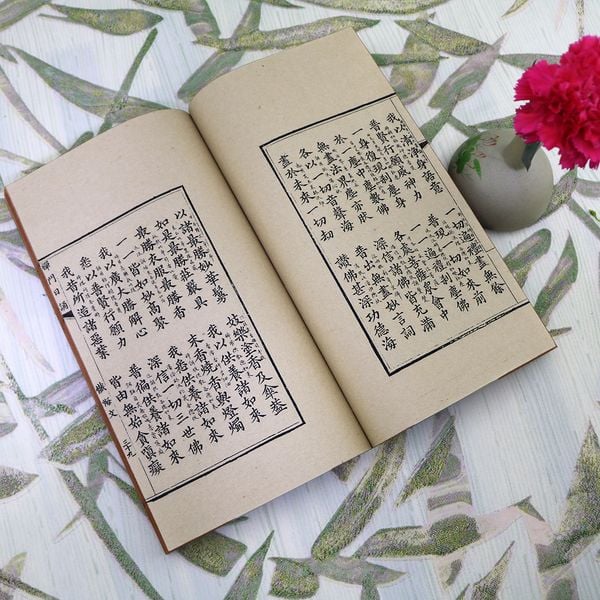 我以清淨身語意 一切遍禮盡無餘
普賢行願威神力 普現一切如來前
一身復現剎塵身 一一遍禮剎塵佛
於一塵中塵數佛 各處菩薩眾會中
無盡法界塵亦然 深信諸佛皆充滿
各以一切音聲海 普出無盡妙言詞
盡於未來一切劫 讚佛甚深功德海
以諸最勝妙華鬘 妓樂塗香及傘蓋
如是最勝莊嚴具 我以供養諸如來
最勝衣服最勝香 末香燒香與燈燭
一一皆如妙高聚 我悉供養諸如來
我以廣大勝解心 深信一切三世佛
悉以普賢行願力 普徧供養諸如來
我昔所造諸惡業 皆由無始貪瞋癡
禪門日誦 懺悔文